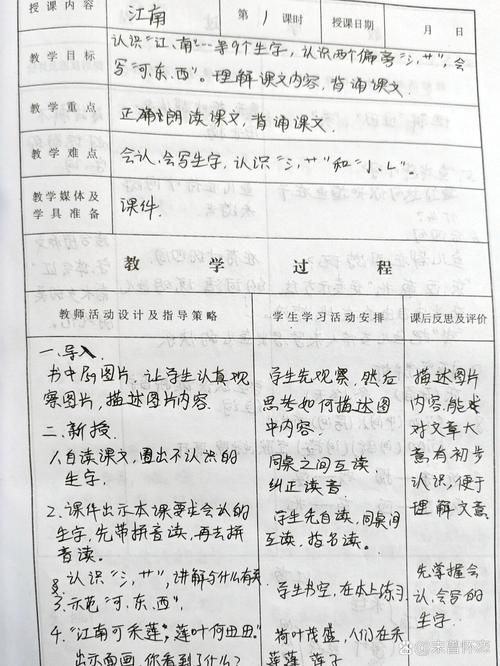 授课内容 江南 第 1 课时 授课日期 月 日
教学目标
认识“江、南”…等9个生字，认识两个偏旁“氵，艹”，会
写“可、东、西”。理解课文内容，背诵课文.
教学重点
正确朗读课文，背诵课文.
教学难点
会认、会写生字，认识“氵，艹”和
教学媒体及
学具准备
课件.
教学过程
教师活动设计及指导策略
一.导入.
书中的图片，让学生认真观
察图片，描述图片内容.
二.新授.
1.自读课文，圈出不认识的
生字.
2.课件出示本课要求会认的
生字，先带拼音读，再去拼
音读。
认识“氵，艹”，讲解与什么有关
3.示范“可、东、西”.
4.“江南可采莲，莲叶何田田.”
出示画面，你看到了什么？
学生学习活动安排
学生先观察，然后
思考如何描述图
中内容.
同桌之间互读.
纠正读音
学生先自读，同桌间
互读，指名读.
学生书空，在本上练习.
荷叶茂盛，人们在采
莲蓬、莲子
课后反思及评价
描述图片
内容，能
对文章大
意有初步
认识，便于
理解文意.
先掌握会
认、会写的
生字.